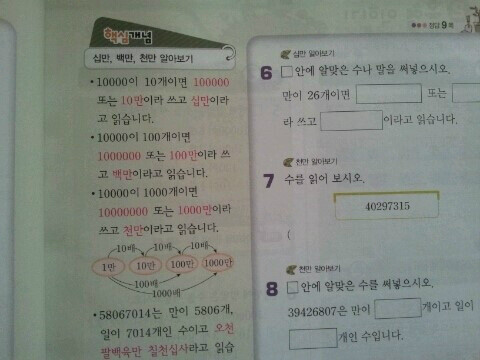 정답 9쪽
핵심개념
십만, 백만, 천만 알아보기
• 10000이 10개이면 100000
또는 10만이라 쓰고 십만이라
고 읽습니다.
• 10000이 100개이면
1000000 또는 100만이라 쓰
고 백만이라고 읽습니다.
• 10000이 1000개이면
10000000 또는 1000만이라
쓰고 천만이라고 읽습니다.
10배 10배 10배
1만 10만 100만 1000만
100배
1000배
• 58067014는 만이 5806개,
일이 7014개인 수이고 오천
팔백육만 칠천십사라고 읽습
십만 알아보기
6 □안에 알맞은 수나 말을 써넣으시오.
만이 26개이면 또는
라 쓰고 이라고 읽습니다.
천만 알아보기
7 수를 읽어 보시오.
40297315
(
천만 알아보기
8 □안에 알맞은 수를 써넣으시오.
39426807은 만이 개이고 일이
개인 수입니다.